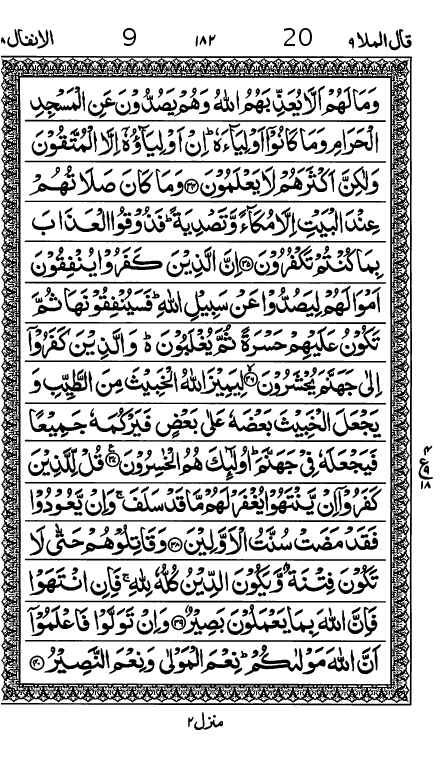 قال الملا ۹ 20 ۱۸۲ 9 الانفال ۸
وَمَا لَهُمْ اَلَّا يُعَذِّبَهُمُ اللّٰهُ وَهُمْ يَصُدُّوْنَ عَنِ الْمَسْجِدِ
الْحَرَامِ وَمَا كَانُوْۤا اَوْلِيَآءَهٗ ؕ اِنْ اَوْلِيَآؤُهٗۤ اِلَّا الْمُتَّقُوْنَ
وَلٰكِنَّ اَكْثَرَهُمْ لَا يَعْلَمُوْنَ ﴿۳۴﴾ وَمَا كَانَ صَلَاتُهُمْ
عِنْدَ الْبَيْتِ اِلَّا مُكَآءً وَّتَصْدِيَةً ؕ فَذُوْقُوا الْعَذَابَ
بِمَا كُنْتُمْ تَكْفُرُوْنَ ﴿۳۵﴾ اِنَّ الَّذِيْنَ كَفَرُوْا يُنْفِقُوْنَ
اَمْوَالَهُمْ لِيَصُدُّوْا عَنْ سَبِيْلِ اللّٰهِ ؕ فَسَيُنْفِقُوْنَهَا ثُمَّ
تَكُوْنُ عَلَيْهِمْ حَسْرَةً ثُمَّ يُغْلَبُوْنَ ۬ؕ وَالَّذِيْنَ كَفَرُوْۤا
اِلٰى جَهَنَّمَ يُحْشَرُوْنَ ﴿۳۶﴾ لِيَمِيْزَ اللّٰهُ الْخَبِيْثَ مِنَ الطَّيِّبِ وَ
يَجْعَلَ الْخَبِيْثَ بَعْضَهٗ عَلٰى بَعْضٍ فَيَرْكُمَهٗ جَمِيْعًا
فَيَجْعَلَهٗ فِيْ جَهَنَّمَ ؕ اُولٰٓئِكَ هُمُ الْخٰسِرُوْنَ ﴿۳۷﴾ قُلْ لِّلَّذِيْنَ
كَفَرُوْۤا اِنْ يَّنْتَهُوْا يُغْفَرْ لَهُمْ مَّا قَدْ سَلَفَ ۚ وَاِنْ يَّعُوْدُوْا
فَقَدْ مَضَتْ سُنَّتُ الْاَوَّلِيْنَ ﴿۳۸﴾ وَقَاتِلُوْهُمْ حَتّٰى لَا
تَكُوْنَ فِتْنَةٌ وَّيَكُوْنَ الدِّيْنُ كُلُّهٗ لِلّٰهِ ۚ فَاِنِ انْتَهَوْا
فَاِنَّ اللّٰهَ بِمَا يَعْمَلُوْنَ بَصِيْرٌ ﴿۳۹﴾ وَاِنْ تَوَلَّوْا فَاعْلَمُوْۤا
اَنَّ اللّٰهَ مَوْلٰىكُمْ ؕ نِعْمَ الْمَوْلٰى وَنِعْمَ النَّصِيْرُ ﴿۴۰﴾
ع ۱۸
منزل ۲